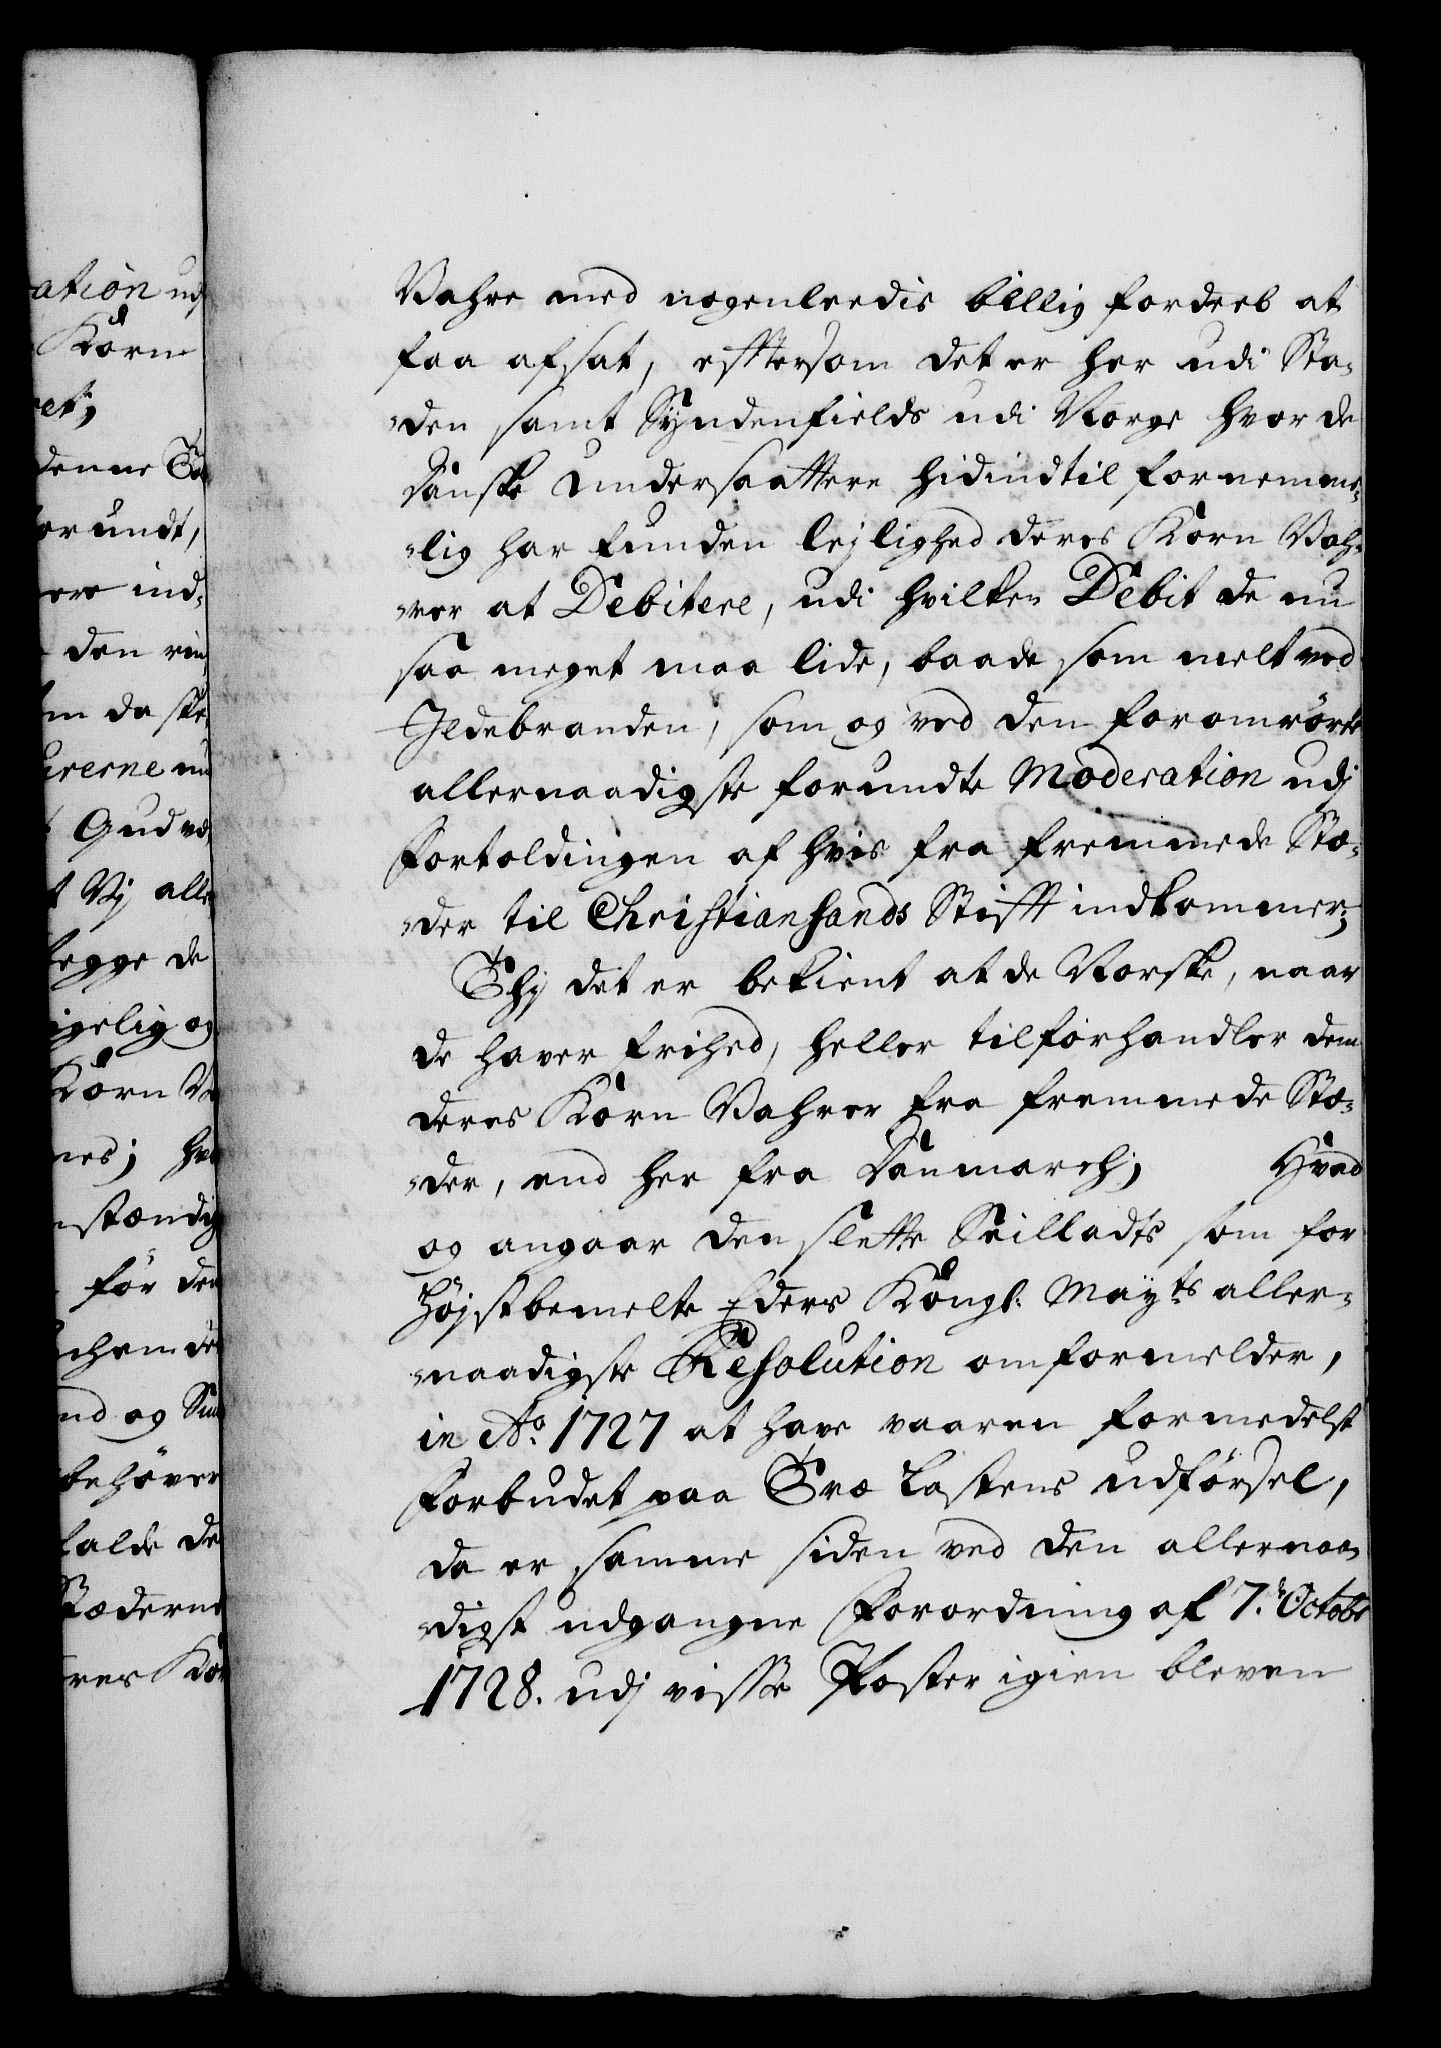 ation udj
Korn
et;
denne Sa
or undt,
ere ind-
den rin
m da ske
urerne nu
Gud ve
t Vij alle
legge de
igelig og
Korn Va
nes; hv
nstændig
for den
chem de
nd og Sun
behøver
falde de
Stæderne
res Kor
Vahre med nogenleedis billig fordeel at
faa afsat, efftersom det er her udi Sta-
den samt Syndenfields udi Norge hvor de
Danske Undersaattere hidindtil fornemme-
lig har funden lejlighed deres Korn Vah-
rer at Debitere, udi hvilken Debit de nu
saa meget maa lide, baade som melt ved
Ildebranden, som og ved den foromrørte
allernaadigste forundte Moderation udj
Fortoldingen af hvis fra fremmede Stæ-
der til Christiansands Stifft indkommer;
Thj det er bekient at de Norske, naar
de haver frihed, heller tilforhandler dem
deres Korn Vahrer fra fremmede Stæ-
der, end her fra Danmarch; Hvad
og angaar den slette Seilladts som for
Højstbemelte Eders Kongl: Mayts aller-
naadigste Resolution omformelder,
in Ao. 1727 at have vaaren formedelst
Forbudet paa Træ Lastens udførsel,
da er samme siden ved den allernaa-
digst udgangne Forordning af 7. Octobr
1728. udj visse Poster igien bleven